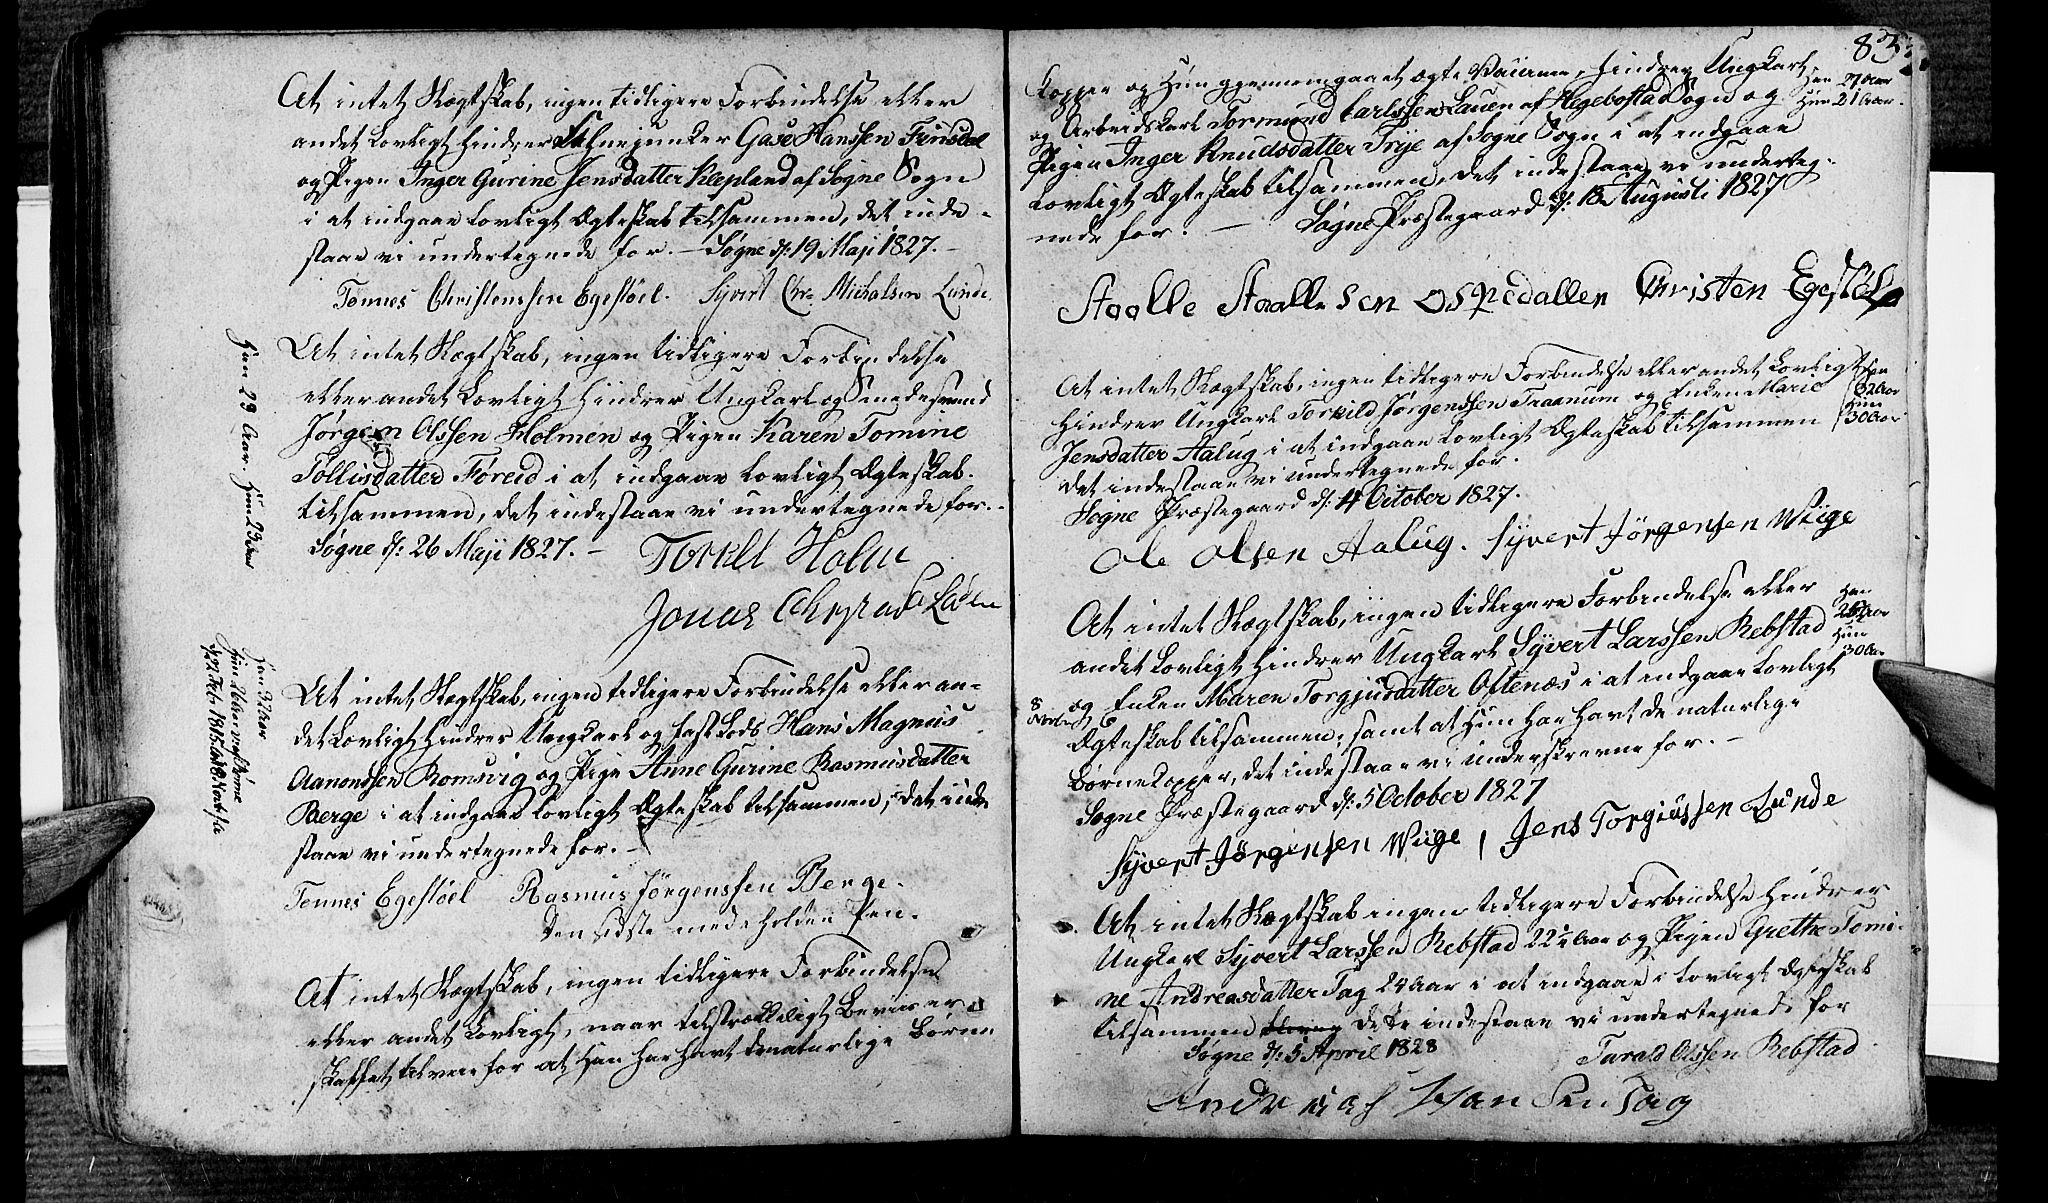 At intet Slægtskab, ingen tidligere Forbindelse eller
andet Lovligt hindrer Gase Hanssen Finsdal
og Pigen Inger Gurine Jensdatter Klepland af Søgne Sogn
i at indgaae Lovligt Ægteskab tilsammen, det inde-
staae vi undertegnede for. — Søgne d: 19 Maji 1827. —
Tønnes Christenssen Egestøel. Syvert Chr. Michalsen Lunde
At intet Slægtskab, ingen tidligere Forbindelse
eller andet Lovligt Hindrer Ungkarl og Smedesvend
Jørgen Olssen Holmen og Pigen Karen Tomine
Tollisdatter Føreid i at indgaae Lovligt Ægteskab
tilsammen, det indestaae vi undertegnede for. -
Søgne d: 26 Maji 1827. —
Torkel Holm
Jonas
Han 29 Aar. Hun 23 Aar
At intet Slægtskab, ingen tidligere Forbindelse eller an-
det Lovligt Hindrer Ungkarl og Hans Magnus
Aanondssen Romsvig og Pige Anne Gurine Rasmusdatter
Berge i at indgaae Lovligt Ægteskab tilsammen, det inde
staae vi undertegnede for. —
Tønnes Egestøel Rasmus Jørgenssen Berge.
Den sidste med holden Pen.
Han 32 Aar
Hun
d 22 Feb. 1815
At intet Slægtskab, ingen tidligere Forbindelse
eller andet Lovligt, naar tilstrækkeligt Beviis er
skaffet tilveie for at Han har havt de naturlige Børne
83
Kopper og Hun gjennemgaaet ægte Vaccine, Hindrer Ungkarl
og Arbeidskarl Tormund Carlssen Lauen af Hegebostad Sogn og
Pigen Inger Knudsdatter Trye af Søgne Sogn i at indgaae
Lovligt Ægteskab tilsammen, det indestaae vi underteg-
nede for. — Søgne Præstegaard d: 18 Augusti 1827
Han 27 Aar
Hun 21 Aar.
Staalle Staallesen Ospedallen Christen Egestøl
At intet Slægtskab, ingen tidligere Forbindelse eller andet Lovligt
Hindrer Ungkarl Torkild Jørgenssen Traanum og Enken Marie
Jensdatter Aalug i at indgaae Lovligt Ægteskab tilsammen
det indestaae vi undertegnede for.
Søgne Præstegaard d: 4 October 1827.
Han
32 Aar
Hun
30 Aar
Ole Olsen Aalug. Syvert Jørgensen Wiige
At intet Slægtskab, ingen tidligere Forbindelse eller
andet Lovligt Hindrer Ungkarl Syvert Larssen Rebstad
og Enken Maren Torgjusdatter Østenæs i at indgaae Lovligt
Ægteskab tilsammen; samt at Hun har havt de naturlige
Børnekopper, det indestaae vi underskrevne for. —
Søgne Præstegaard d: 5 October 1827
Han
Aar
Hun
30 Aar
Syvert Jørgensen Wiige, Jens Torgiussen Lunde
At intet Slægtskab ingen tidligere Forbindelse Hindrer
Ungkarl Syvert Larssen Rebstad 22½ Aar og Pigen Grethe Tomi-
ne Andreasdatter Tag 24 Aar i at indgaae i Lovligt Ægteskab
tilsammen Dette indestaae vi undertegnede for
Søgne d: 5 April 1828
Tarald Olssen Rebstad
Andreas Hansen Tag